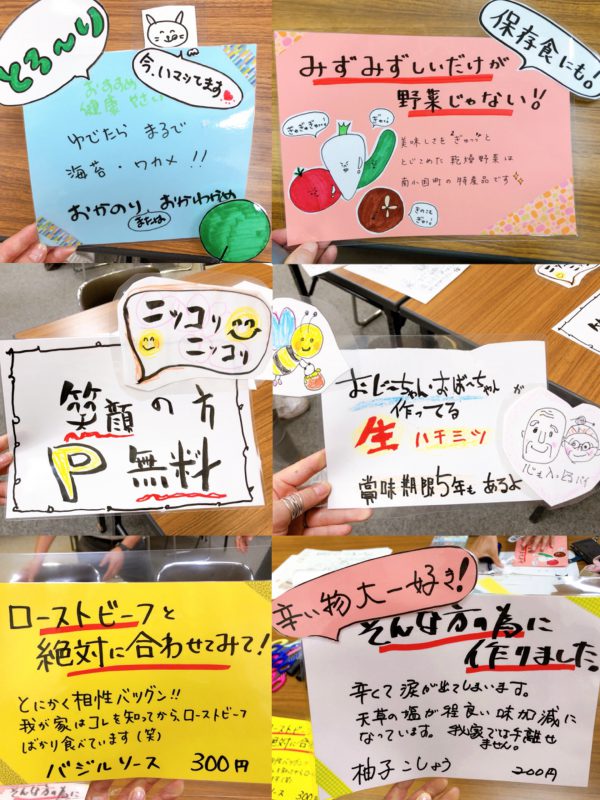 とろ〜り
今、いマってます
おすすめ
健康 やさい
ゆでたら まるで
海苔・ワカメ!!
おかのり
または
おかわかめ
保存食にも。!
みずみずしいだけが
野菜じゃない!!
ぎゅぎゅぎゅっ!
ぎゅっ
美味しさを"ぎゅっ"と
とじこめた 乾燥野菜は
南小国町の特産品です
きのこも
ぎゅっ!
ニッコリ
ニッコリ
笑顔の方
P 無料
おじーちゃん・おばーちゃんが
作ってる
生 ハチミツ
賞味期限5年もあるよ
ローストビーフと
絶対に合わせてみて!
とにかく相性バツグン!!
我が家はコレを知ってから、ローストビーフ
ばかり食べています(笑)
バジルソース 300円
辛い物大ー好き!
そんな方の為に
作りました。
辛くて涙が出てしまいます。
天草の塩が程良い味加減に
なっています。我家では手離せ
ません。
柚子こしょう 200円